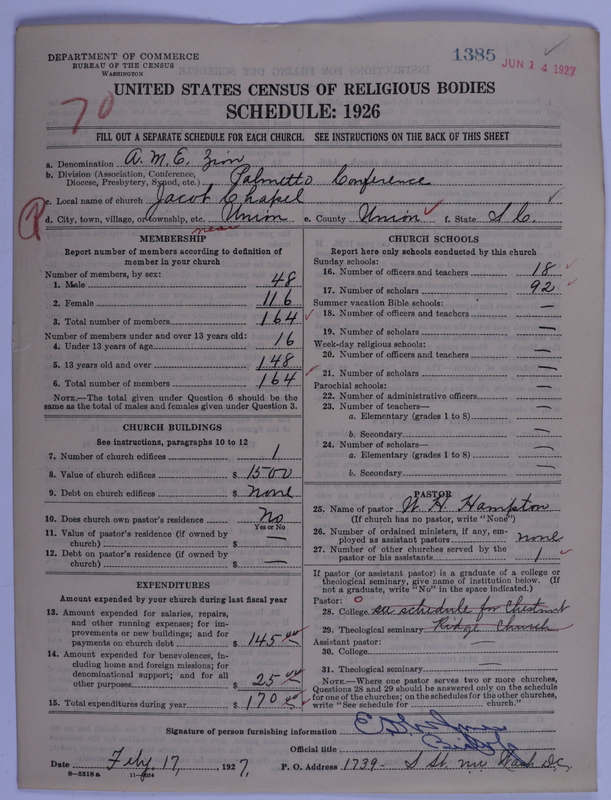 DEPARTMENT OF COMMERCE
BUREAU OF THE CENSUS
WASHINGTON
1385
JUN 14 1927
UNITED STATES CENSUS OF RELIGIOUS BODIES
SCHEDULE: 1926
70
FILL OUT A SEPARATE SCHEDULE FOR EACH CHURCH. SEE INSTRUCTIONS ON THE BACK OF THIS SHEET
a. Denomination A. M. E. Zion
b. Division (Association, Conference, Diocese, Presbytery, Synod, etc.) Palmetto Conference
R
c. Local name of church Jacob Chapel
d. City, town, village, or township, etc. Union e. County Union f. State S.C.
near
MEMBERSHIP
Report number of members according to definition of
member in your church
Number of members, by sex:
1. Male 48
2. Female 116
3. Total number of members 164
Number of members under and over 13 years old:
4. Under 13 years of age 16
5. 13 years old and over 148
6. Total number of members 164
NOTE.—The total given under Question 6 should be
same as the total of males and females given under Question 3.
CHURCH BUILDINGS
See instructions, paragraphs 10 to 12
7. Number of church edifices 1
8. Value of church edifices $ 1500
9. Debt on church edifices $ none
10. Does church own pastor's residence No
Yes or No
11. Value of pastor's residence (if owned by
church) $ —
12. Debt on pastor's residence (if owned by
church) $ —
EXPENDITURES
Amount expended by church during last fiscal year
13. Amount expended for salaries, repairs,
and other running expenses; for im-
provements or new buildings; and for
payments on church debt $ 145 00
14. Amount expended for benevolences, in-
cluding home and foreign missions; for
denominational support; and for all
other purposes $ 25 00
15. Total expenditures during year $ 170 00
CHURCH SCHOOLS
Report here only schools conducted by this church
Sunday schools:
16. Number of officers and teachers 18
17. Number of scholars 92
Summer vacation Bible schools:
18. Number of officers and teachers —
19. Number of scholars —
Week-day religious schools:
20. Number of officers and teachers —
21. Number of scholars —
Parochial schools:
22. Number of administrative officers —
23. Number of teachers—
a. Elementary (grades 1 to 8) —
b. Secondary —
24. Number of scholars—
a. Elementary (grades 1 to 8) —
b. Secondary —
PASTOR
25. Name of pastor W. H. Hampton
(If church has no pastor, write "None")
26. Number of ordained ministers, if any, em-
ployed as assistant pastors none
27. Number of other churches served by the
pastor or his assistants 1
If pastor (or assistant pastor) is a graduate of a college or
theological seminary, give name of institution below. (If
not a graduate, write "No" in the space indicated.)
Pastor: 0
28. College see schedule for Chestnut
29. Theological seminary Ridge Church
Assistant pastor:
30. College —
31. Theological seminary —
NOTE.—Where one pastor serves two or more churches,
Questions 28 and 29 should be answered only on the schedule
for one of the churches; on the schedules for the other churches,
write "See schedule for ------ church."
Signature of person furnishing information
Official title
Date Feby 17, 1927, P. O. Address 1739- S St. NW Wash D.C.
8—5218a 11—9054